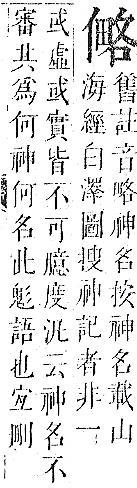 舊註音略神名按神名載山
海經白澤圖搜神記者非一
或虛或實皆不可臆度汎云神名不
審其爲何神何名此鬽語也宐刪